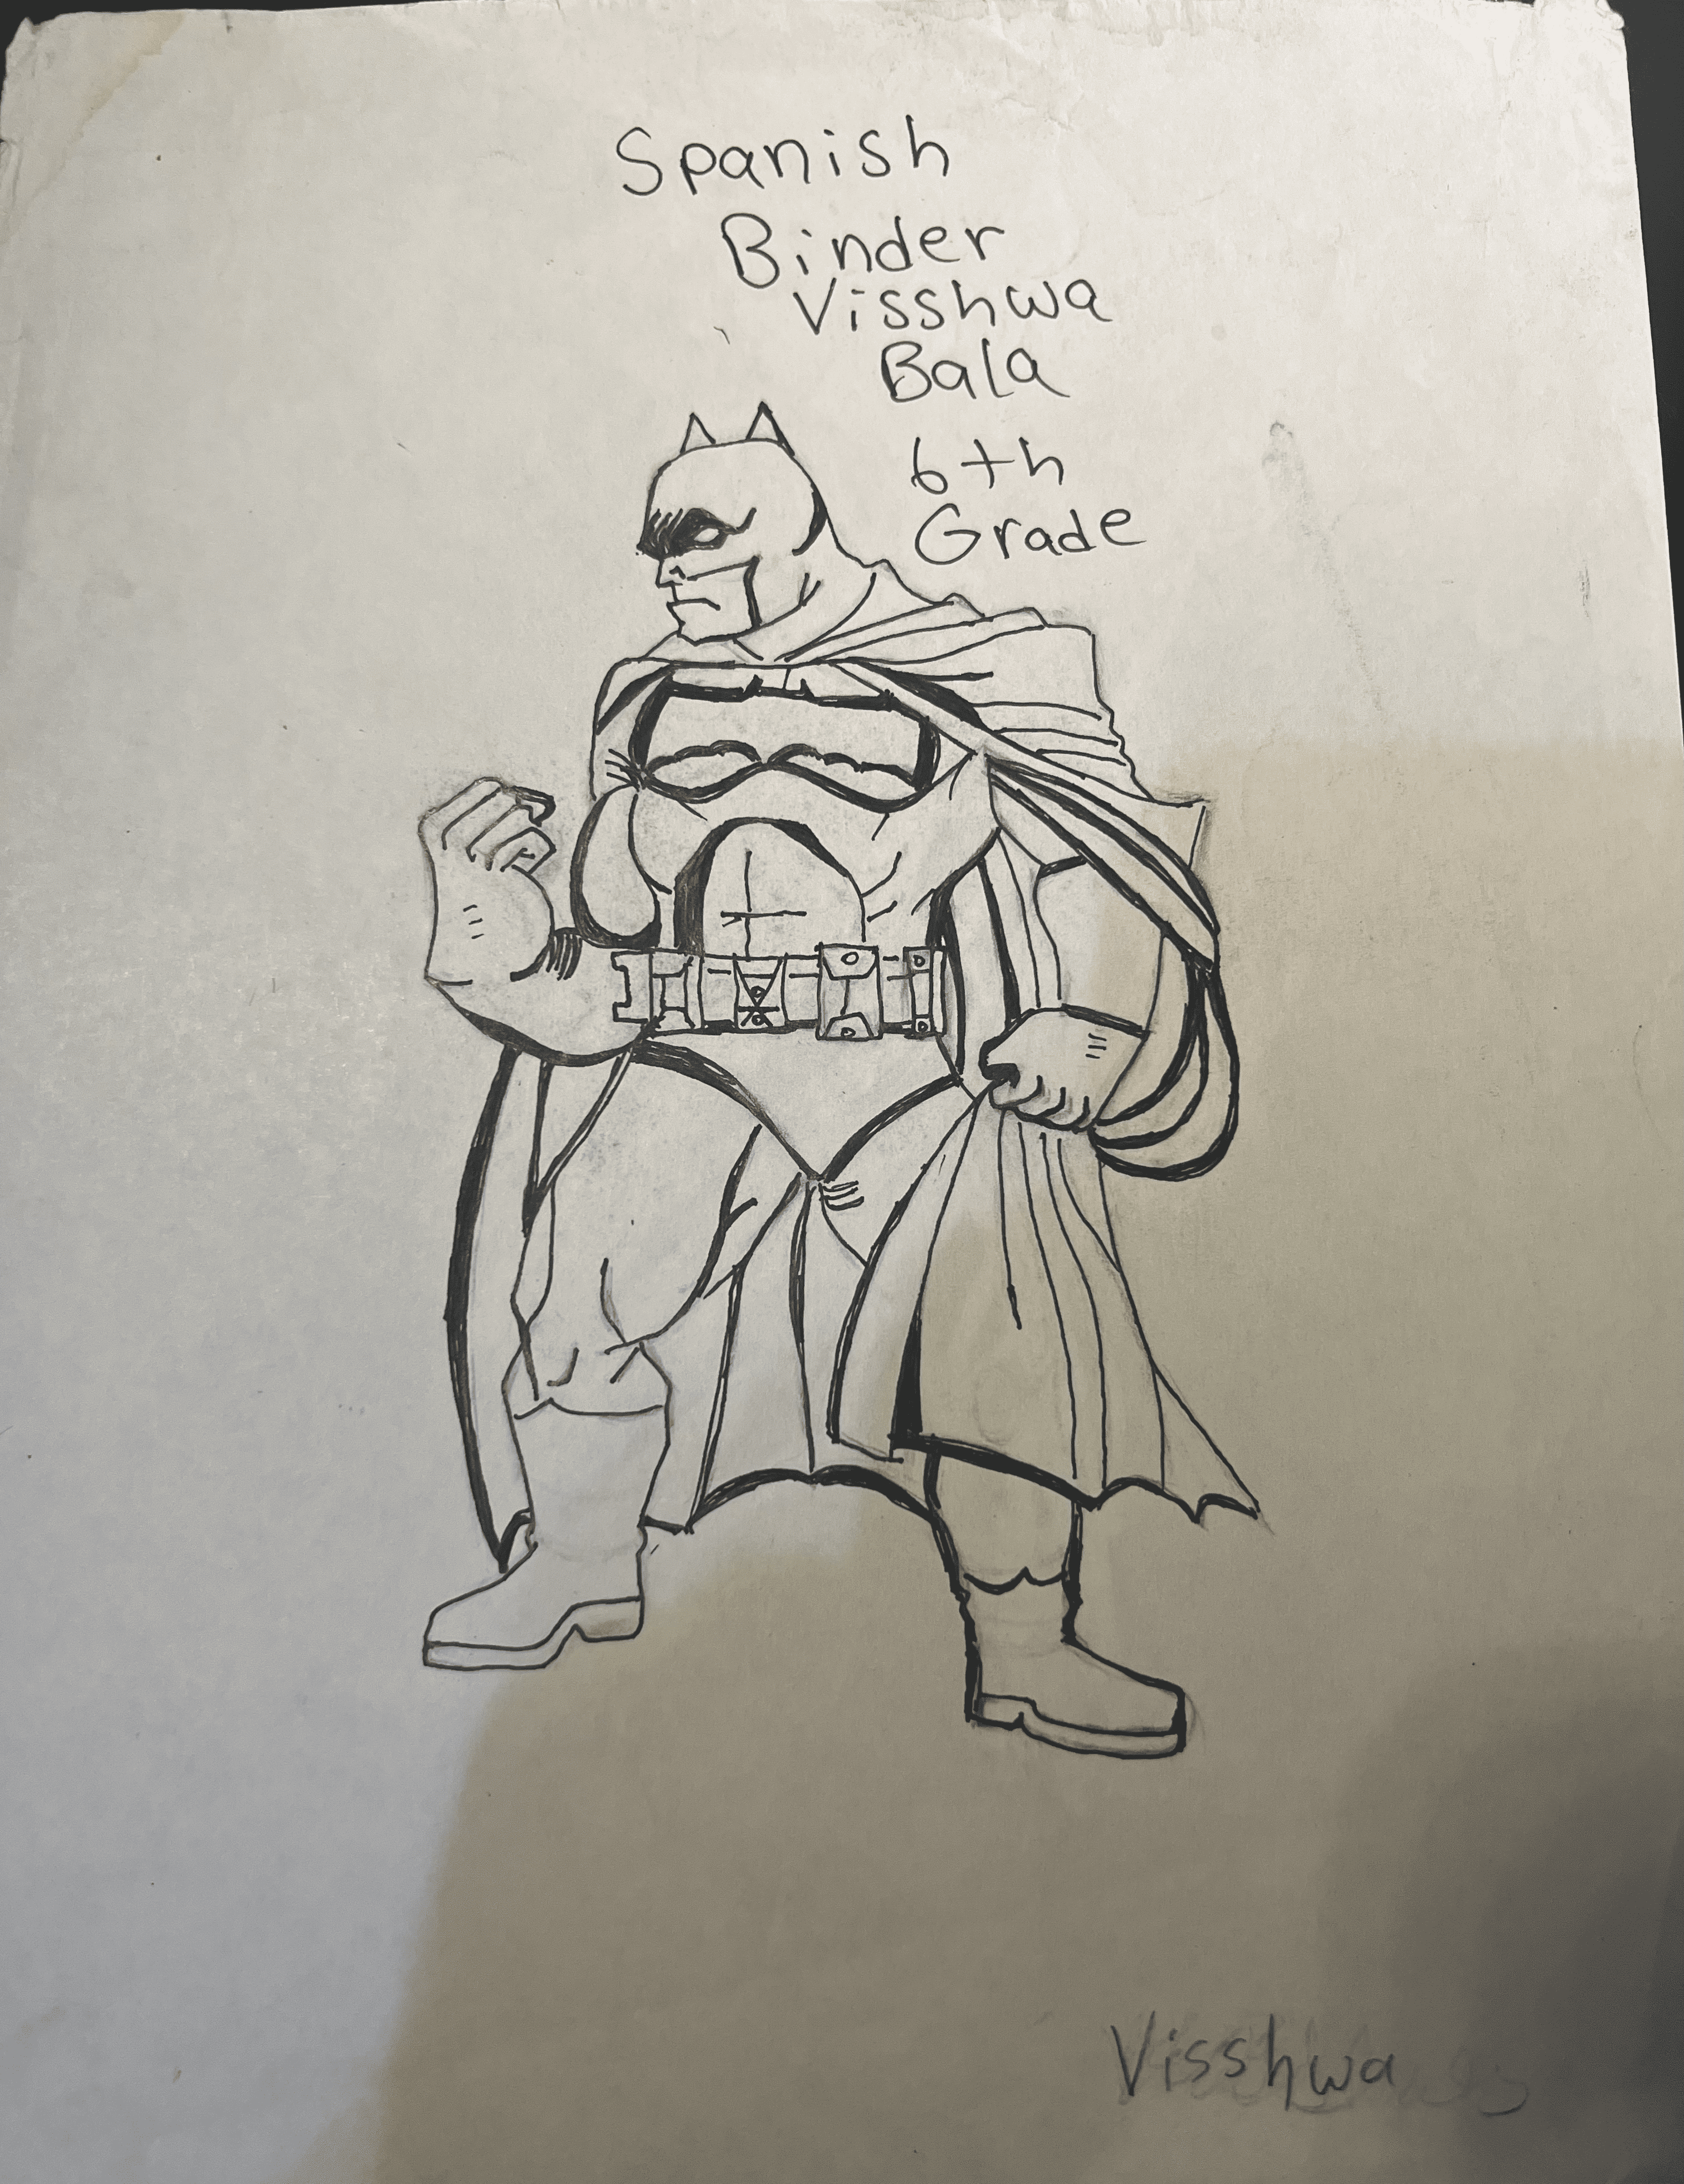 Spanish
Binder
Visshwa
Bala
6th
Grade
Visshwa